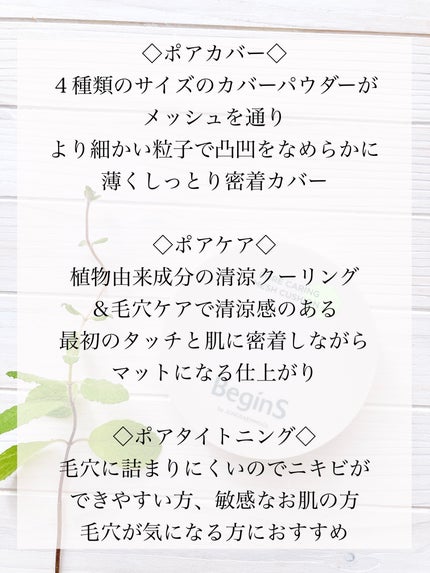 ◇ポアカバー◇
４種類のサイズのカバーパウダーが
メッシュを通り
より細かい粒子で凸凹をなめらかに
薄くしっとり密着カバー
◇ポアケア◇
植物由来成分の清涼クーリング
＆毛穴ケアで清涼感のある
最初のタッチと肌に密着しながら
マットになる仕上がり
BeginS
◇ポアタイトニング◇
毛穴に詰まりにくいのでニキビが
できやすい方、敏感なお肌の方
毛穴が気になる方におすすめ